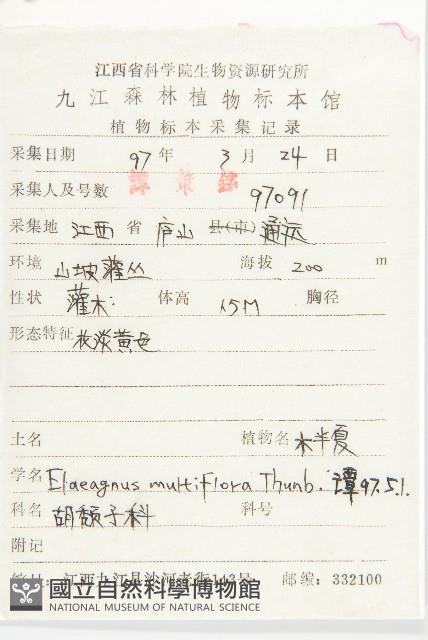 江西省科学院生物资源研究所
九江森林植物标本馆
植物标本采集记录
采集日期 97年 3月 24日
采集人及号数 譚策銘 97091
采集地 江西 省 庐山 县(市) 通远
环境 山坡灌丛 海拔 200 m
性状 灌木 体高 1.5M 胸径
形态特征 枚淡黄色
土名 植物名 木半夏
学名 Elaeagnus multiflora Thunb. 譚97.5.1.
科名 胡颓子科 科号
附记
江西九江县沙河老街143号 邮编:332100
國立自然科學博物館
NATIONAL MUSEUM OF NATURAL SCIENCE